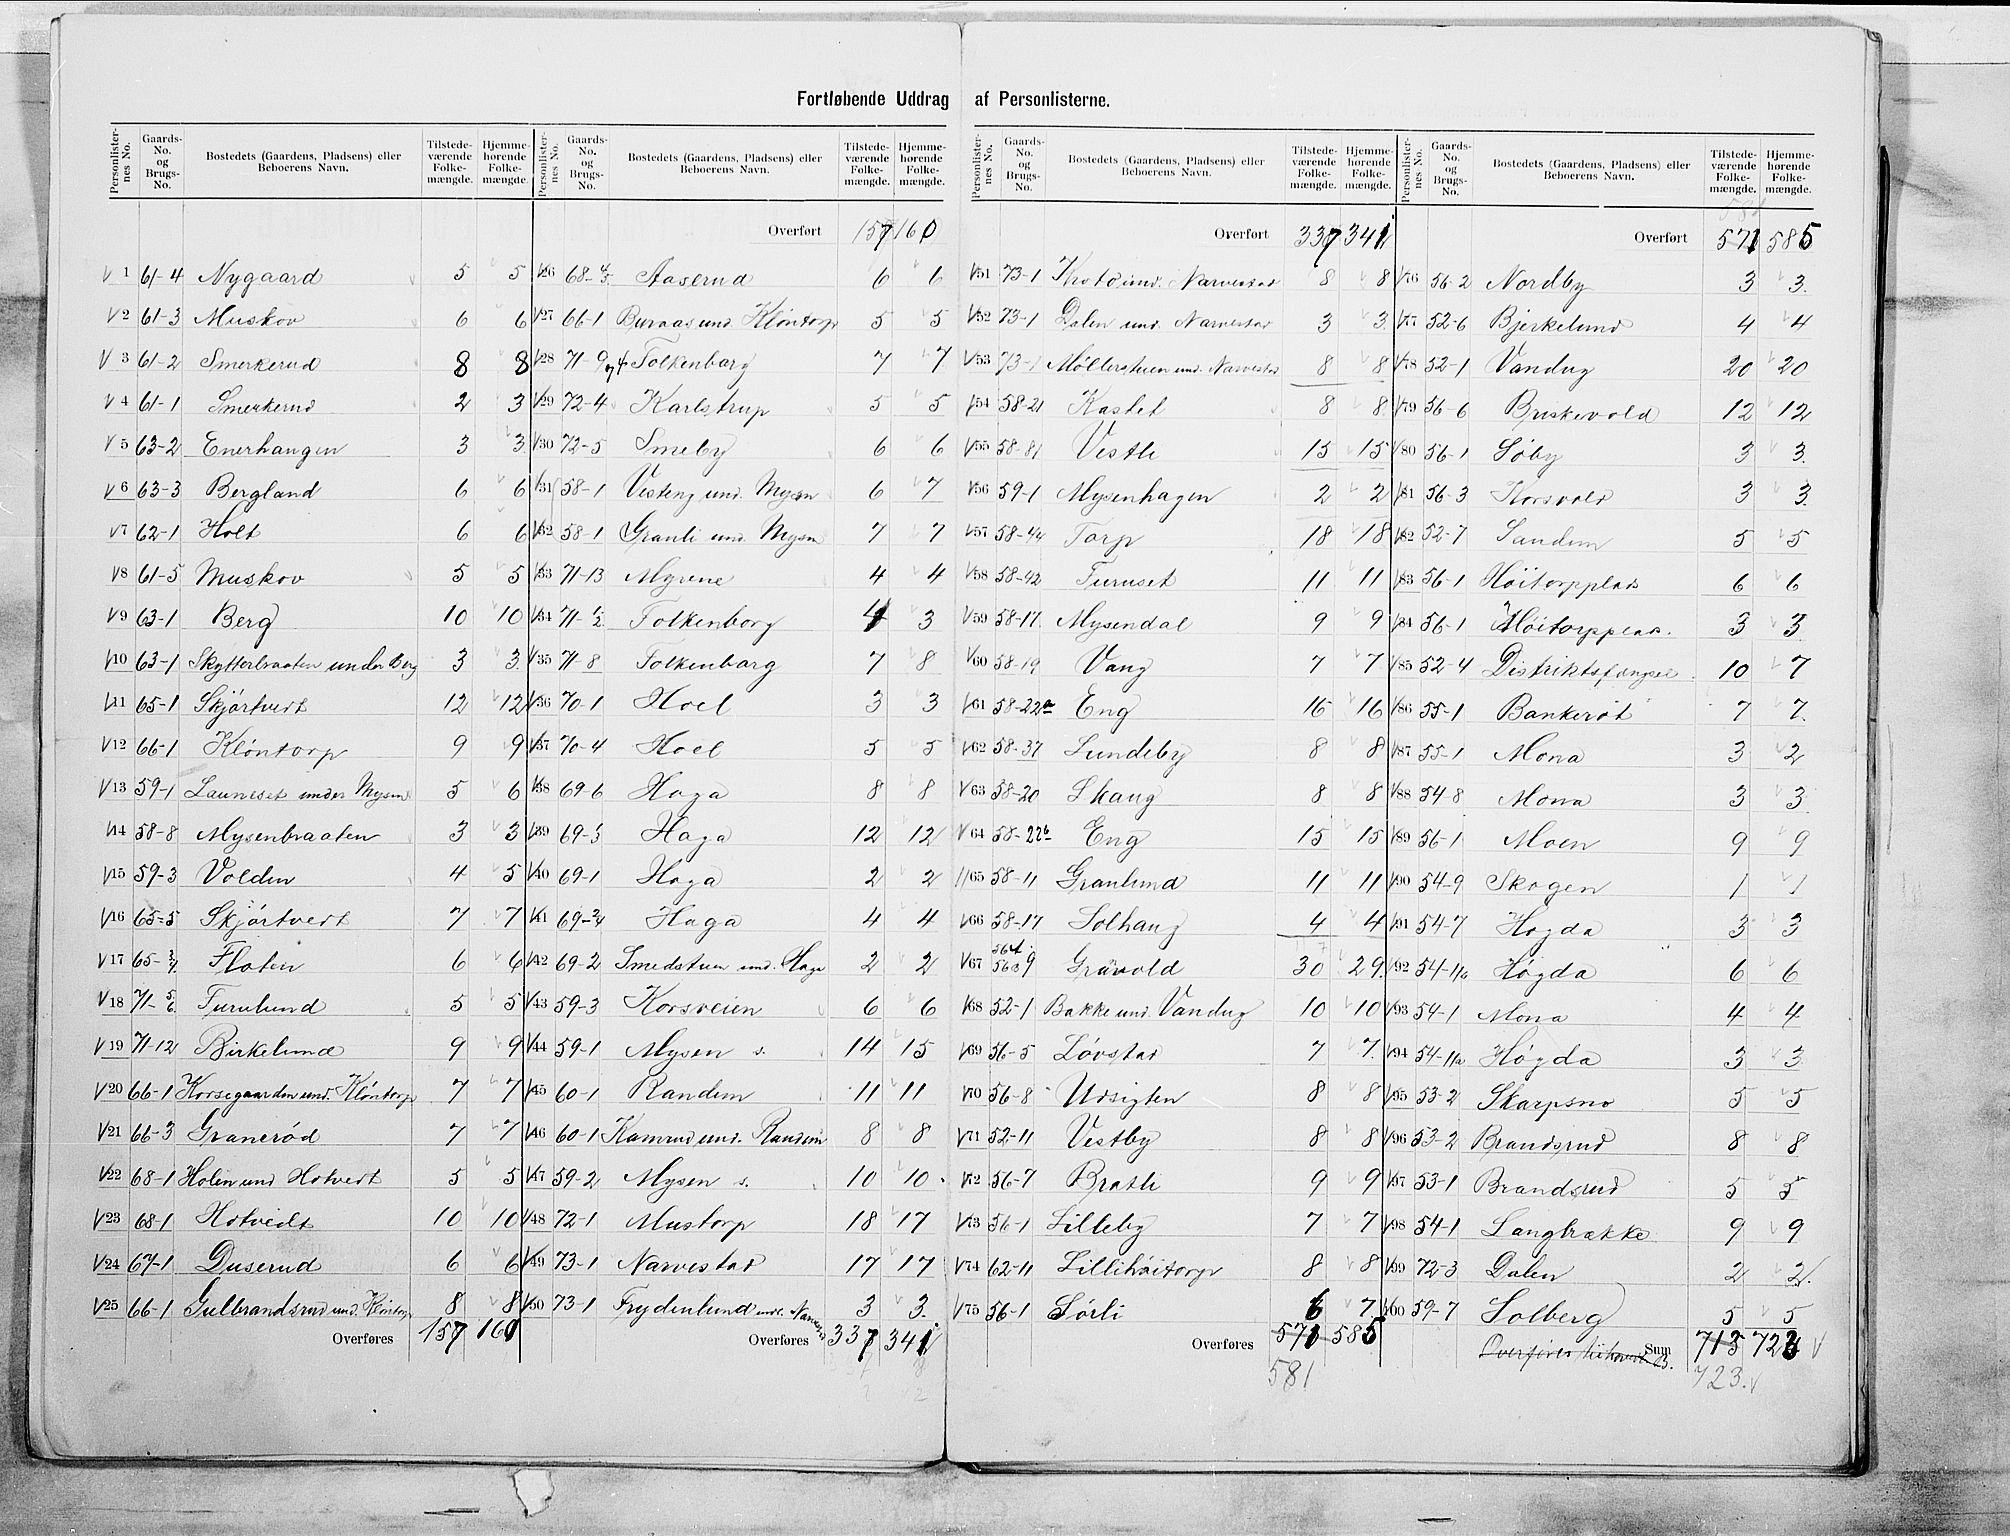 Fortløbende Uddrag af Personlisterne.
Personlister-nes No. Gaards-No. og Brugs-No. Bostedets (Gaardens, Pladsens) eller Beboerens Navn. Tilstede-værende Folke-mængde. Hjemme-hørende Folke-mængde.
1 61-4 Nygaard 5 5
2 61-3 Muskov 6 6
3 61-2 Smerkerud 8 8
4 61-1 Smerkerud 2 3
5 63-2 Enerhaugen 3 3
6 63-3 Bergland 6 6
7 62-1 Holt 6 6
8 61-5 Muskov 5 5
9 63-1 Berg 10 10
10 63-1 Skytterbraaten under Berg 3 3
11 65-1 Skjørtvedt 12 12
12 66-1 Kløntorp 9 9
13 59-1 Launeset under Mysen 5 6
14 58-8 Mysenbraaten 3 3
15 59-3 Volden 4 5
16 65-5 Skjørtvedt 7 7
17 65-3/4 Floten 6 6
18 71-5/6 Furulund 5 5
19 71-12 Birkelund 9 9
20 66-1 Korsegaarden und. Kløntorp 7 7
21 66-3 Granerød 7 7
22 68-1 Holen und Hotvedt 5 5
23 68-1 Hotvedt 10 10
24 67-1 Duserud 6 6
25 66-1 Gulbrandsrud und. Kløntorp 8 8
Overføres 157 160
Personlister-nes No. Gaards-No. og Brugs-No. Bostedets (Gaardens, Pladsens) eller Beboerens Navn. Tilstede-værende Folke-mængde. Hjemme-hørende Folke-mængde.
Overført 157 160
26 68- Aaserud 6 6
27 66-1 Buraas und Kløntorp 5 5
28 71-9 Folkenborg 7 7
29 72-4 Karlstrup 5 5
30 72-5 Smeby 6 6
31 58-1 Vesteng und. Mysen 6 7
32 58-1 Granli und. Mysen 7 7
33 71-13 Myrene 4 4
34 71-1/2 Folkenborg 4 3
35 71-8 Folkenborg 7 8
36 70-1 Hoel 3 3
37 70-4 Hoel 5 5
38 69-6 Haga 8 8
39 69-5 Haga 12 12
40 69-1 Haga 2 2
41 69-3/4 Haga 4 4
42 69-2 Smedstuen und. Haga 2 2
43 59-3 Korsveien 6 6
44 59-1 Mysen s. 14 15
45 60-1 Randem 11 11
46 60-1 Kamrud und. Randem 8 8
47 59-2 Mysen s. 10 10
48 72-1 Mustorp 18 17
49 73-1 Narvestad 17 17
50 73-1 Frydenlund und. Narvestad 3 3
Overføres 337 341
Personlister-nes No. Gaards-No. og Brugs-No. Bostedets (Gaardens, Pladsens) eller Beboerens Navn. Tilstede-værende Folke-mængde. Hjemme-hørende Folke-mængde.
Overført 337 341
51 73-1 und. Narvestad 8 8
52 73-1 Dalen und. Narvestad 3 3
53 73-1 Møllerstuen und. Narvestad 8 8
54 58-21 Kastet 8 8
55 58-81 Vestli 15 15
56 59-1 Mysenhagen 2 2
57 58-44 Torp 18 18
58 58-42 Furuset 11 11
59 58-17 Mysendal 9 9
60 58-19 Vang 7 7
61 58-22a Eng 16 16
62 58-37 Lundeby 8 8
63 58-20 Skaug 8 8
64 58-22b Eng 15 15
65 58-11 Granlund 11 11
66 58-17 Solhaug 4 4
67 Gravold 30 29
68 52-1 Bakke und. Vandug 10 10
69 56-5 Løvstad 7 7
70 56-8 Udsigten 8 8
71 52-11 Vestby 8 8
72 56-7 Bratli 9 9
73 56-1 Lilleby 7 7
74 62-11 Lillihøitorp 8 8
75 56-1 Sørli 6 7
Overføres 571 585
581
Personlister-nes No. Gaards-No. og Brugs-No. Bostedets (Gaardens, Pladsens) eller Beboerens Navn. Tilstede-værende Folke-mængde. Hjemme-hørende Folke-mængde.
581
Overført 571 585
76 56-2 Nordby 3 3
77 52-6 Bjerkelund 4 4
78 52-1 Vandug 20 20
79 56-6 Buskevold 12 12
80 56-1 Søby 3 3
81 56-3 Korsvold 3 3
82 52-7 Sandem 5 5
83 56-1 Høitorpplads 6 6
84 56-1 Høitorpplas. 3 3
85 52-4 Distriktsfængsel 10 7
86 55-1 Bankerøt 7 7
87 55-1 Mona 3 2
88 54-8 Mona 3 3
89 56-1 Moen 9 9
90 54-9 Skogen 1 1
91 54-7 Høgda 3 3
92 54-11b Høgda 6 6
93 54-1 Mona 4 4
94 54-11a Høgda 3 3
95 53-2 Skarpsno 5 5
96 53-2 Brandsrud 8 8
97 53-1 Brandsrud 5 5
98 54-1 Langbrække 9 9
99 72-3 Dalen 2 2
100 59-7 Solberg 5 5
Overføres Sum 713 723
723